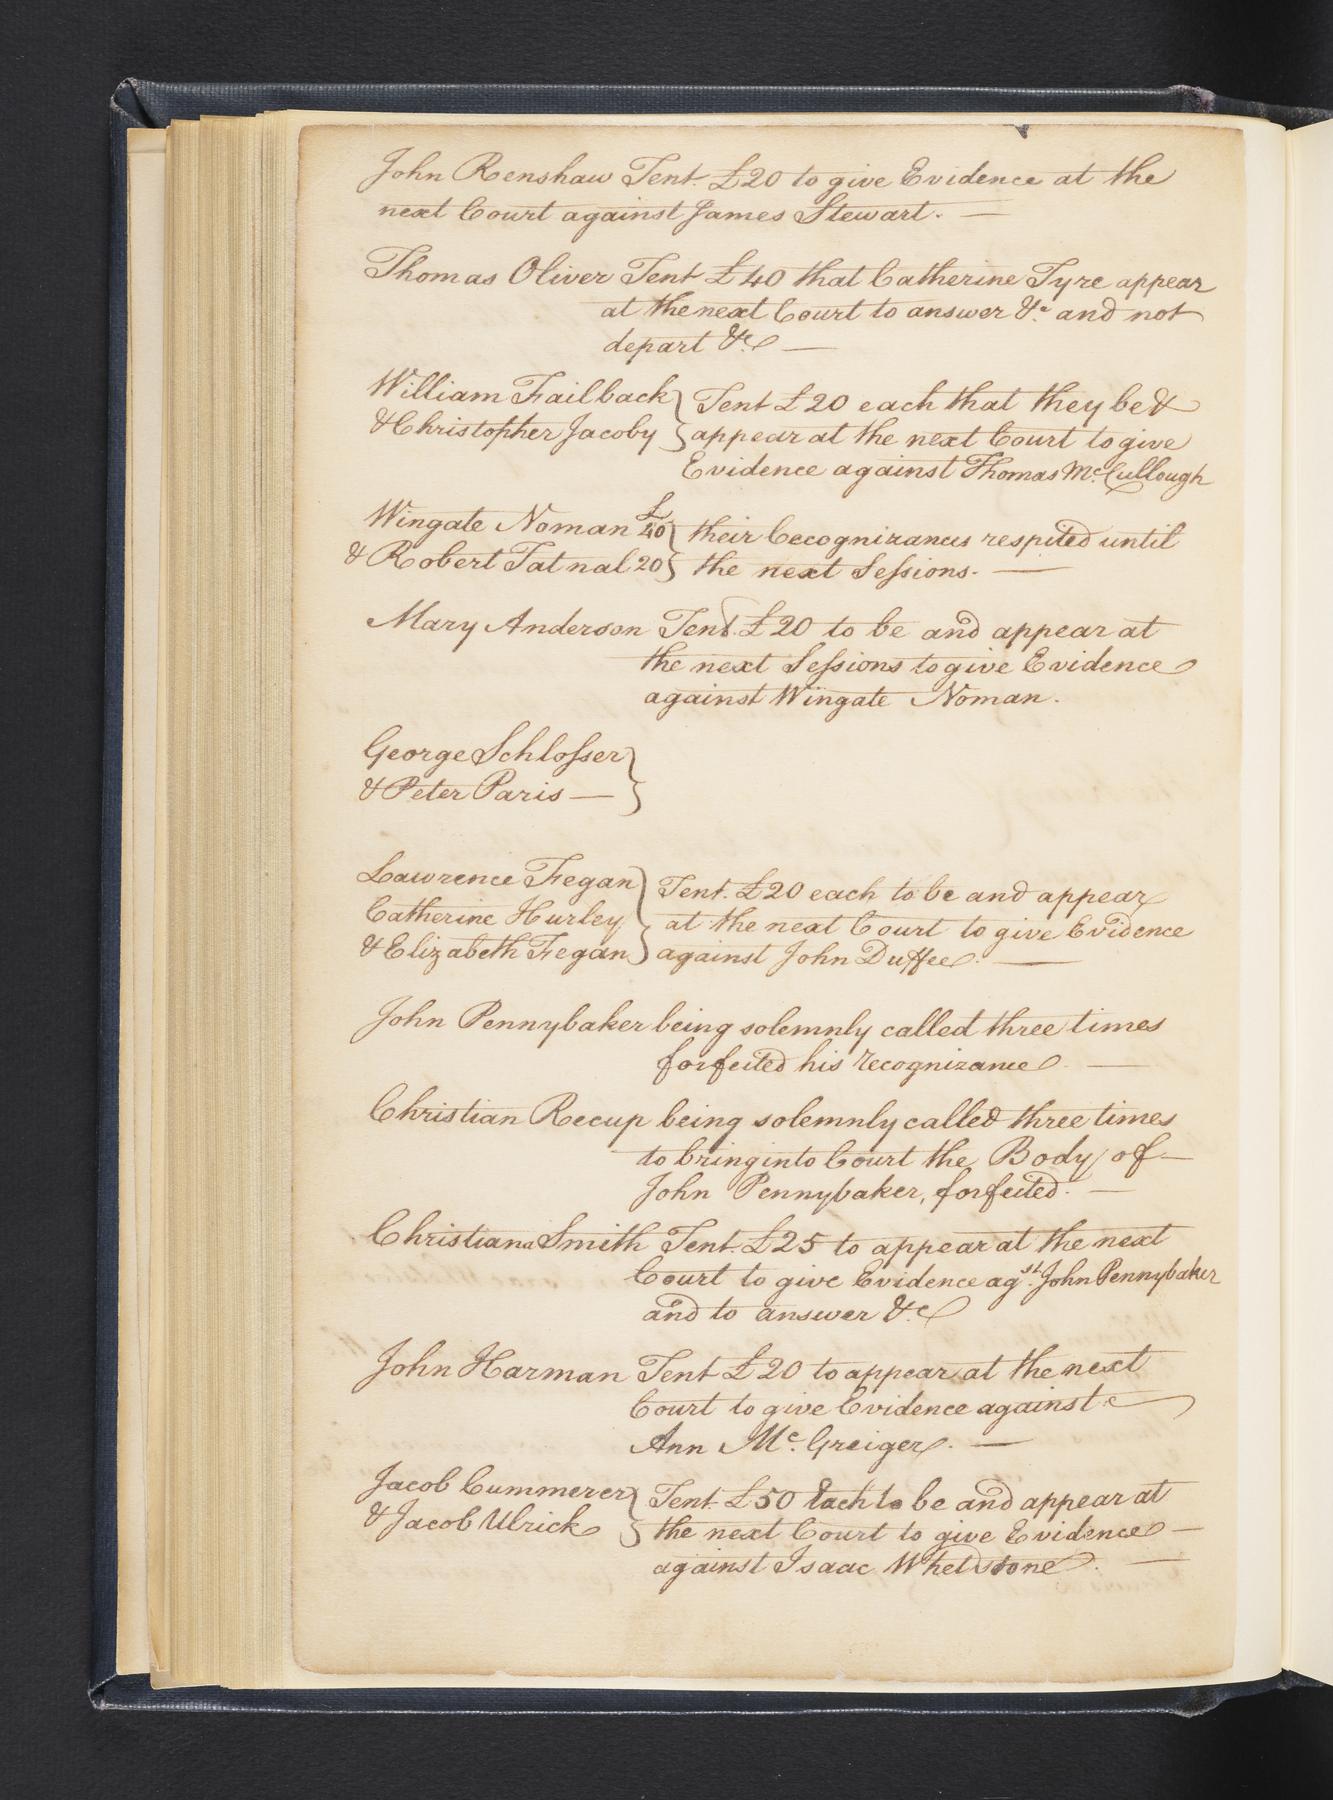 John Renshaw Tent. £20 to give Evidence at the
next Court against James Stewart. —
Thomas Oliver Tent £40 that Catherine Tyre appear
at the next Court to answer &c. and not
depart &c —
William Failback } Tent £20 each that they be &
& Christopher Jacoby } appear at the next Court to give
Evidence against Thomas McCullough
Wingate Noman £40 } their Recognizances respited until
& Robert Tatnal 20 } the next Sessions. —
Mary Anderson Tent. £20 to be and appear at
the next Sessions to give Evidence
against Wingate Noman.
George Schlosser }
& Peter Paris — }
Lawrence Fegan } Tent. £20 each to be and appear
Catherine Hurley } at the next Court to give Evidence
& Elizabeth Fegan } against John Duffee. —
John Pennybaker being solemnly called three times
forfeited his recognizance. —
Christian Recup being solemnly called three times
to bring into Court the Body of —
John Pennybaker, forfeited. —
Christiana Smith Tent. £25 to appear at the next
Court to give Evidence agst. John Pennybaker
and to answer &c
John Harman Tent £20 to appear at the next
Court to give Evidence against
Ann Mc. Greiger. —
Jacob Cummerer } Tent. £50 Each to be and appear at
& Jacob Ulrick } the next Court to give Evidence —
against Isaac Whetstone. —